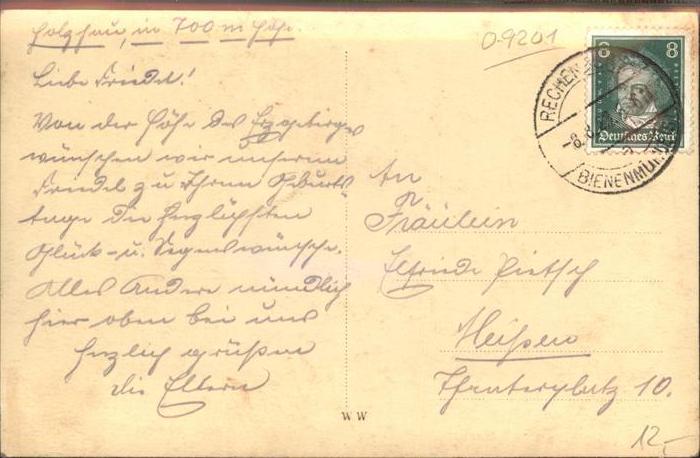 Holzhau, in 700 m Höhe.
Liebe Friedel!
Von der Höhe des Erzgebirges
wünschen wir unserm
Friedel zu Ihrem Geburts-
tage die herzlichsten
Glück- u. Segenswünsche.
Alles Andere mündlich
hier oben bei uns
herzlich grüßen
die Eltern
0-9201
8 8
Deutsches Reich
RECHENBE
BIENENMÜ
An
Fräulein
Elfriede Pietsch
Meißen
Theaterplatz 10.
W W
12,-